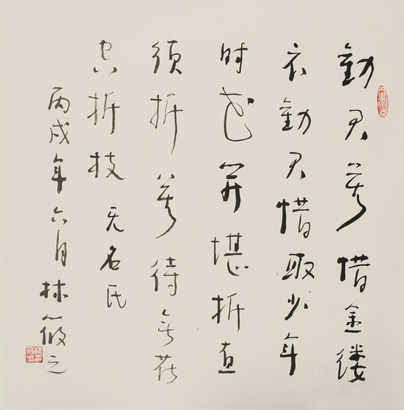 勸君莫惜金縷
衣勸君惜取少年
时花開堪折直
須折莫待無花
空折枝 无名氏
丙戌年六月林筱之